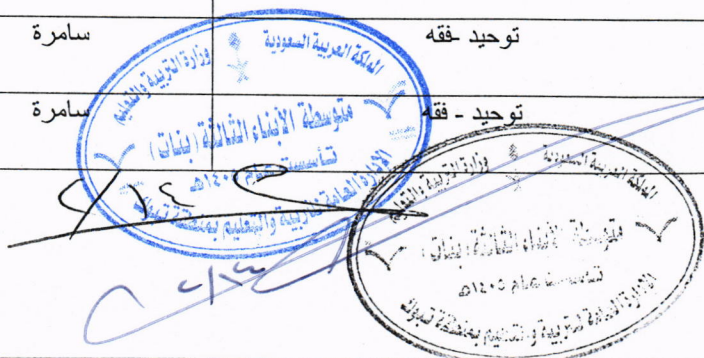 توحيد -فقه سامرة
توحيد - فقه سامرة
المملكة العربية السعودية وزارة التربية والتعليم
متوسطة الأبناء الثالثة ( بنات )
تأسست عام ١٤٠٥هـ
الإدارة العامة للتربية والتعليم بمنطقة تبوك
المملكة العربية السعودية وزارة التربية والتعليم
متوسطة الأبناء الثالثة ( بنات )
تأسست عام ١٤٠٥هـ
الإدارة العامة للتربية والتعليم بمنطقة تبوك